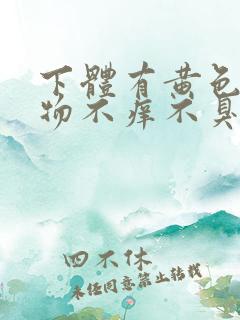 下體有黃色
物不癢不臭
四不休
未經同意禁止轉載